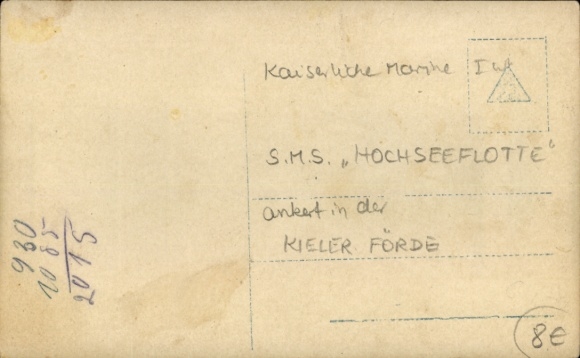 Kaiserliche Marine I WK
S.M.S. „HOCHSEEFLOTTE"
ankert in der
KIELER FÖRDE
8€
930
1085
2015